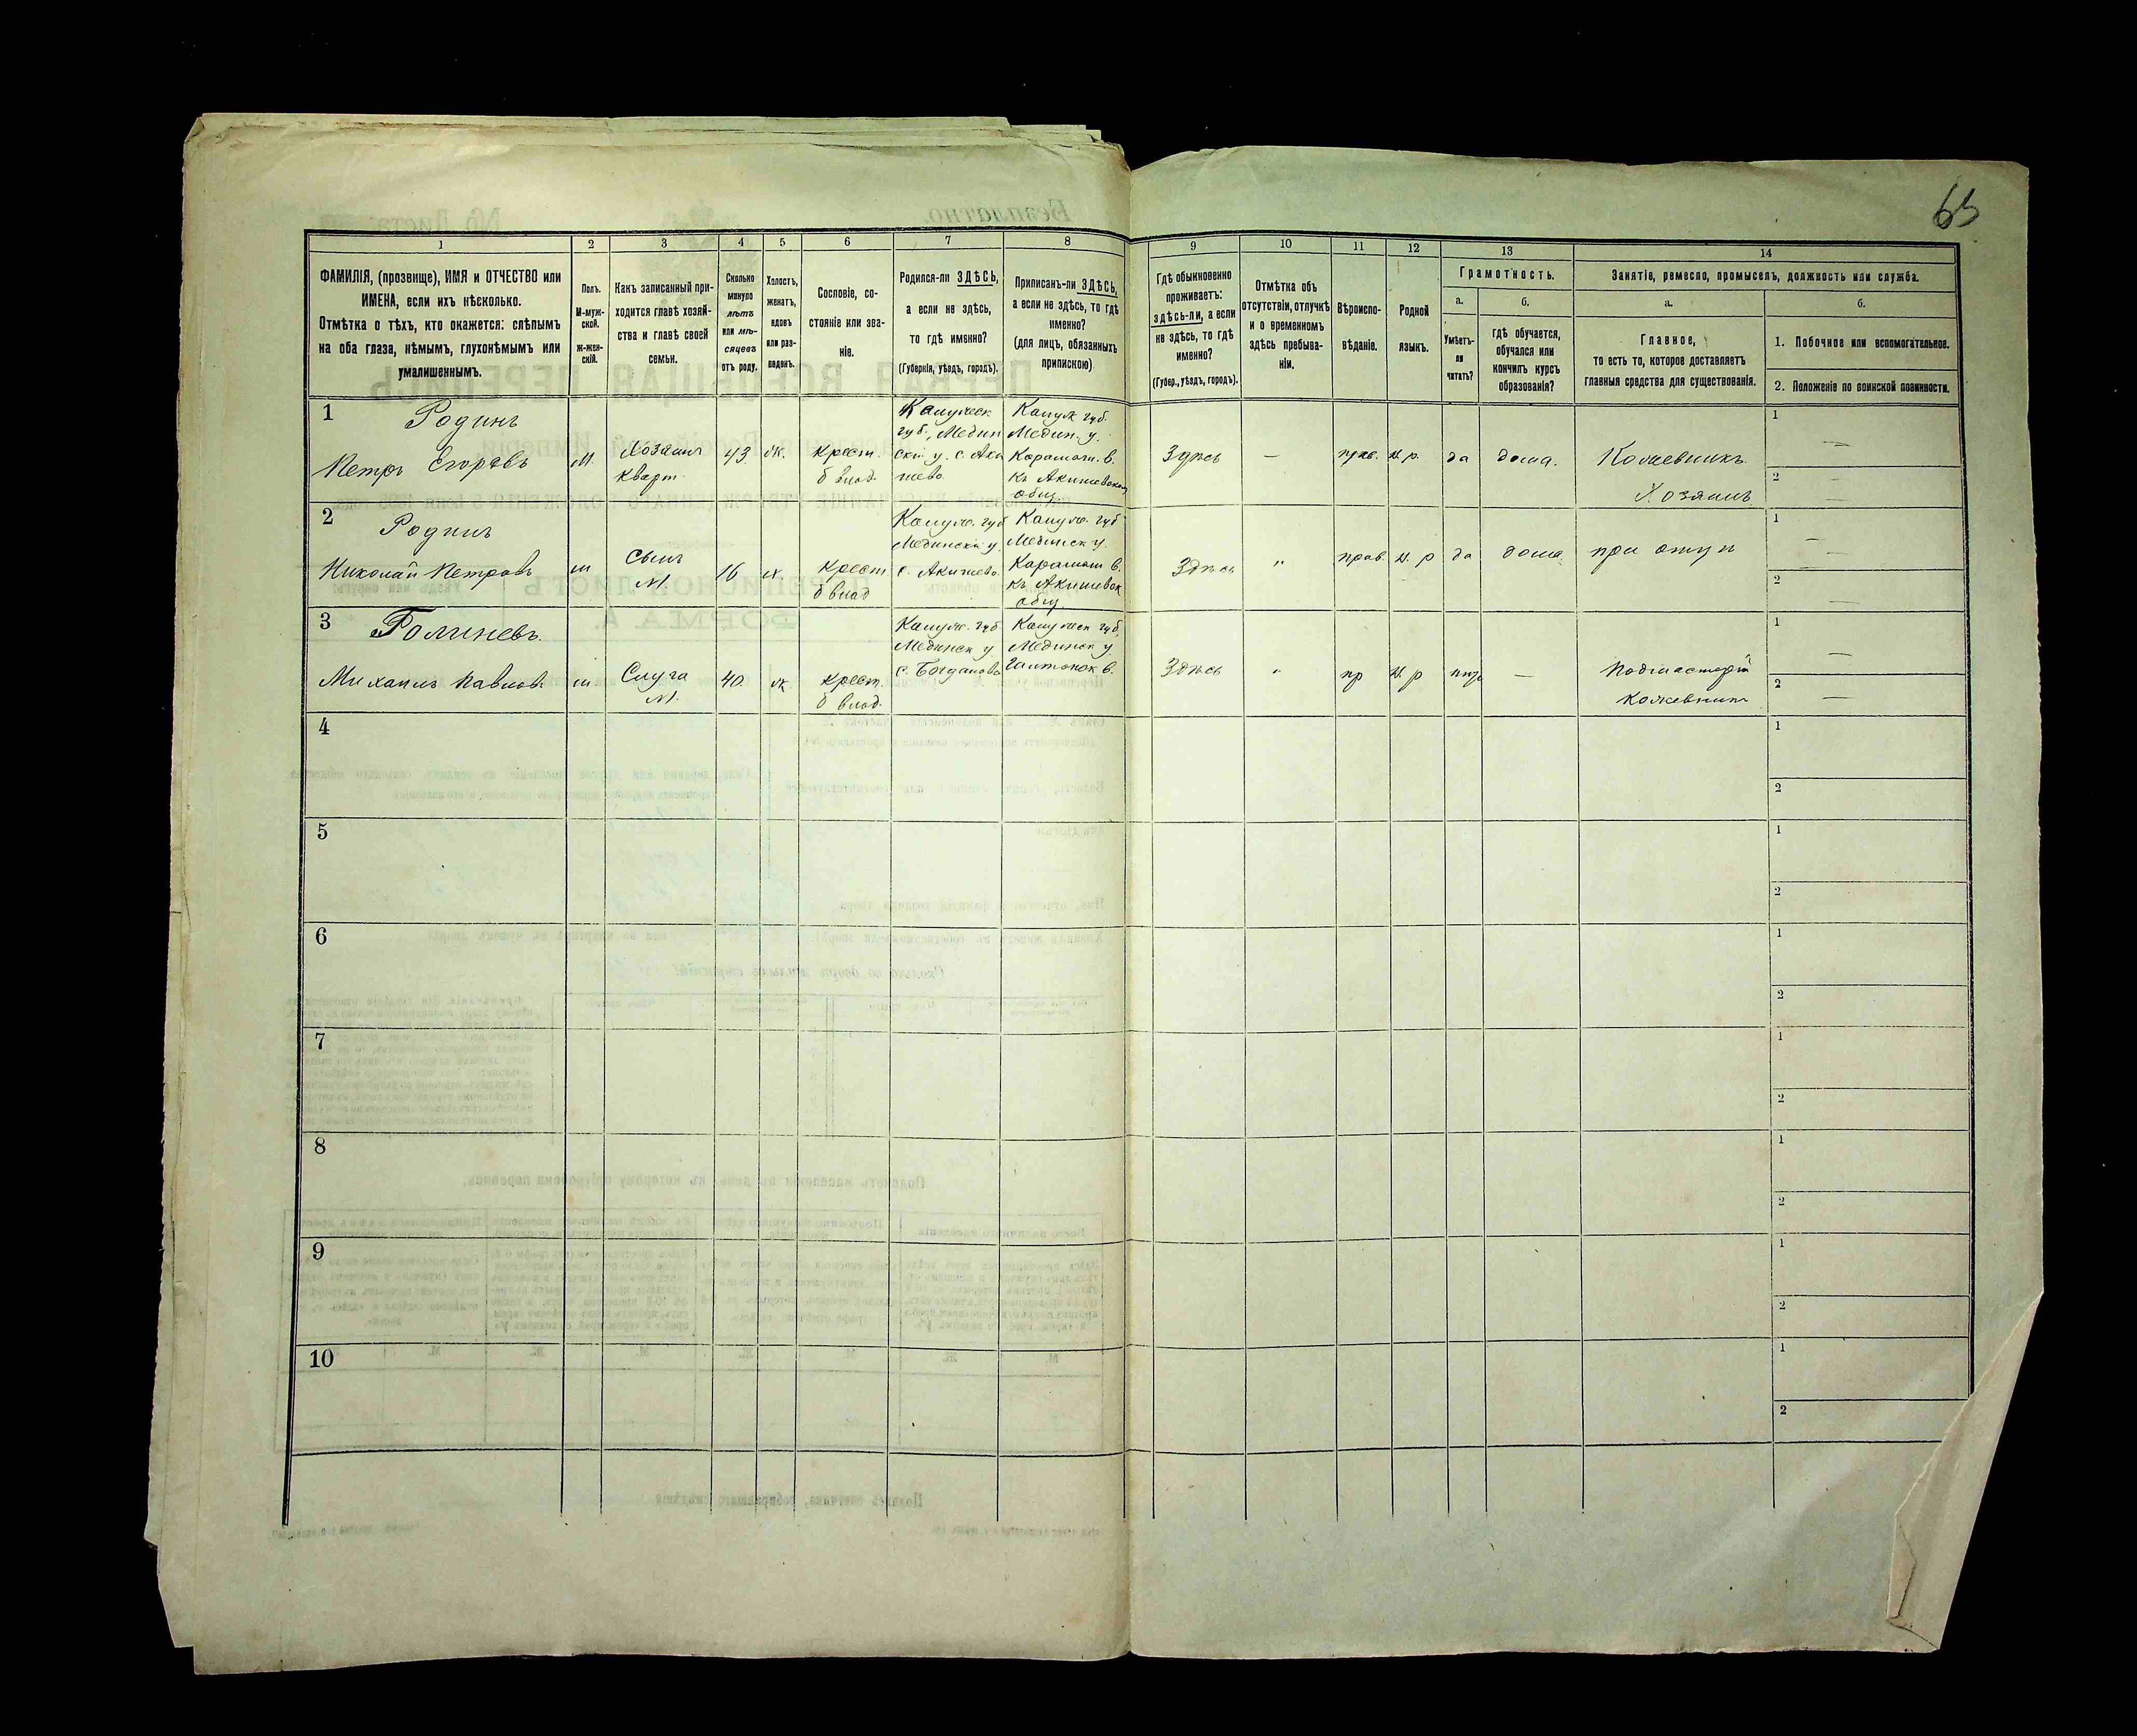 63
1 2 3 4 5 6 7 8 9 10 11 12 13 14
ФАМИЛІЯ, (прозвище), ИМЯ и ОТЧЕСТВО или
ИМЕНА, если ихъ нѣсколько.
Отмѣтка о тѣхъ, кто окажется: слѣпымъ
на оба глаза, нѣмымъ, глухонѣмымъ или
умалишеннымъ.
Полъ.
М-муж-
ской.
Ж-жен-
скій.
Какъ записанный при-
ходится главѣ хозяй-
ства и главѣ своей
семьи.
Сколько
минуло
лѣтъ
или мѣ-
сяцевъ
отъ роду.
Холостъ,
женатъ,
вдовъ
или раз-
веденъ.
Сословіе, со-
стояніе или зва-
ніе.
Родился-ли ЗДѢСЬ,
а если не здѣсь,
то гдѣ именно?
(Губернія, уѣздъ, городъ).
Приписанъ-ли ЗДѢСЬ,
а если не здѣсь, то гдѣ
именно?
(для лицъ, обязанныхъ
припискою)
Гдѣ обыкновенно
проживаетъ:
здѣсь-ли, а если
не здѣсь, то гдѣ
именно?
(Губер., уѣздъ, городъ).
Отмѣтка объ
отсутствіи, отлучкѣ
и о временномъ
здѣсь пребыва-
ніи.
Вѣроиспо-
вѣданіе.
Родной
языкъ.
Грамотность.
а.
Умѣетъ-
ли
читать?
б.
Гдѣ обучается,
обучался или
кончилъ курсъ
образованія?
Занятіе, ремесло, промыселъ, должность или служба.
а.
Главное,
то есть то, которое доставляетъ
главныя средства для существованія.
б.
1. Побочное или вспомогательное.
2. Положеніе по воинской повинности.
1
Родинъ
Петръ Егоровъ
м.
Хозяинъ
Кварт.
43
ж.
Крест.
б влад.
Калужск
губ., Медын
ский у. с. Аки
шево
Калуж губ.
Медын. у.
Карамыш. в.
къ Акишевском
общ.
Здѣсь
—
прав.
В. р.
да
дома.
Кожевникъ
Хозяинъ
1 —
2 —
2
Родинъ
Николай Петровъ
м
Сынъ
№1.
16
х.
Крест
б влад
Калуж. губ
Медынскій у.
с. Акишево
Калуж. губ
Медынск у.
Карамыш в.
къ Акишевск
общ.
Здѣсь
"
прав.
В. р
да
дома.
при отцѣ
1 —
2 —
3
Михаилъ Павлов.
м
Слуга
№1.
40.
ж
Крест.
б влад.
Калуж. губ
Медынск у
с. Богданово
Калужск губ.
Медынск у.
Здѣсь
"
пр
В. р
нѣтъ
—
Подмастерій
Кожевника
1 —
2 —
4
1
2
5
1
2
6
1
2
7
1
2
8
1
2
9
1
2
10
1
2